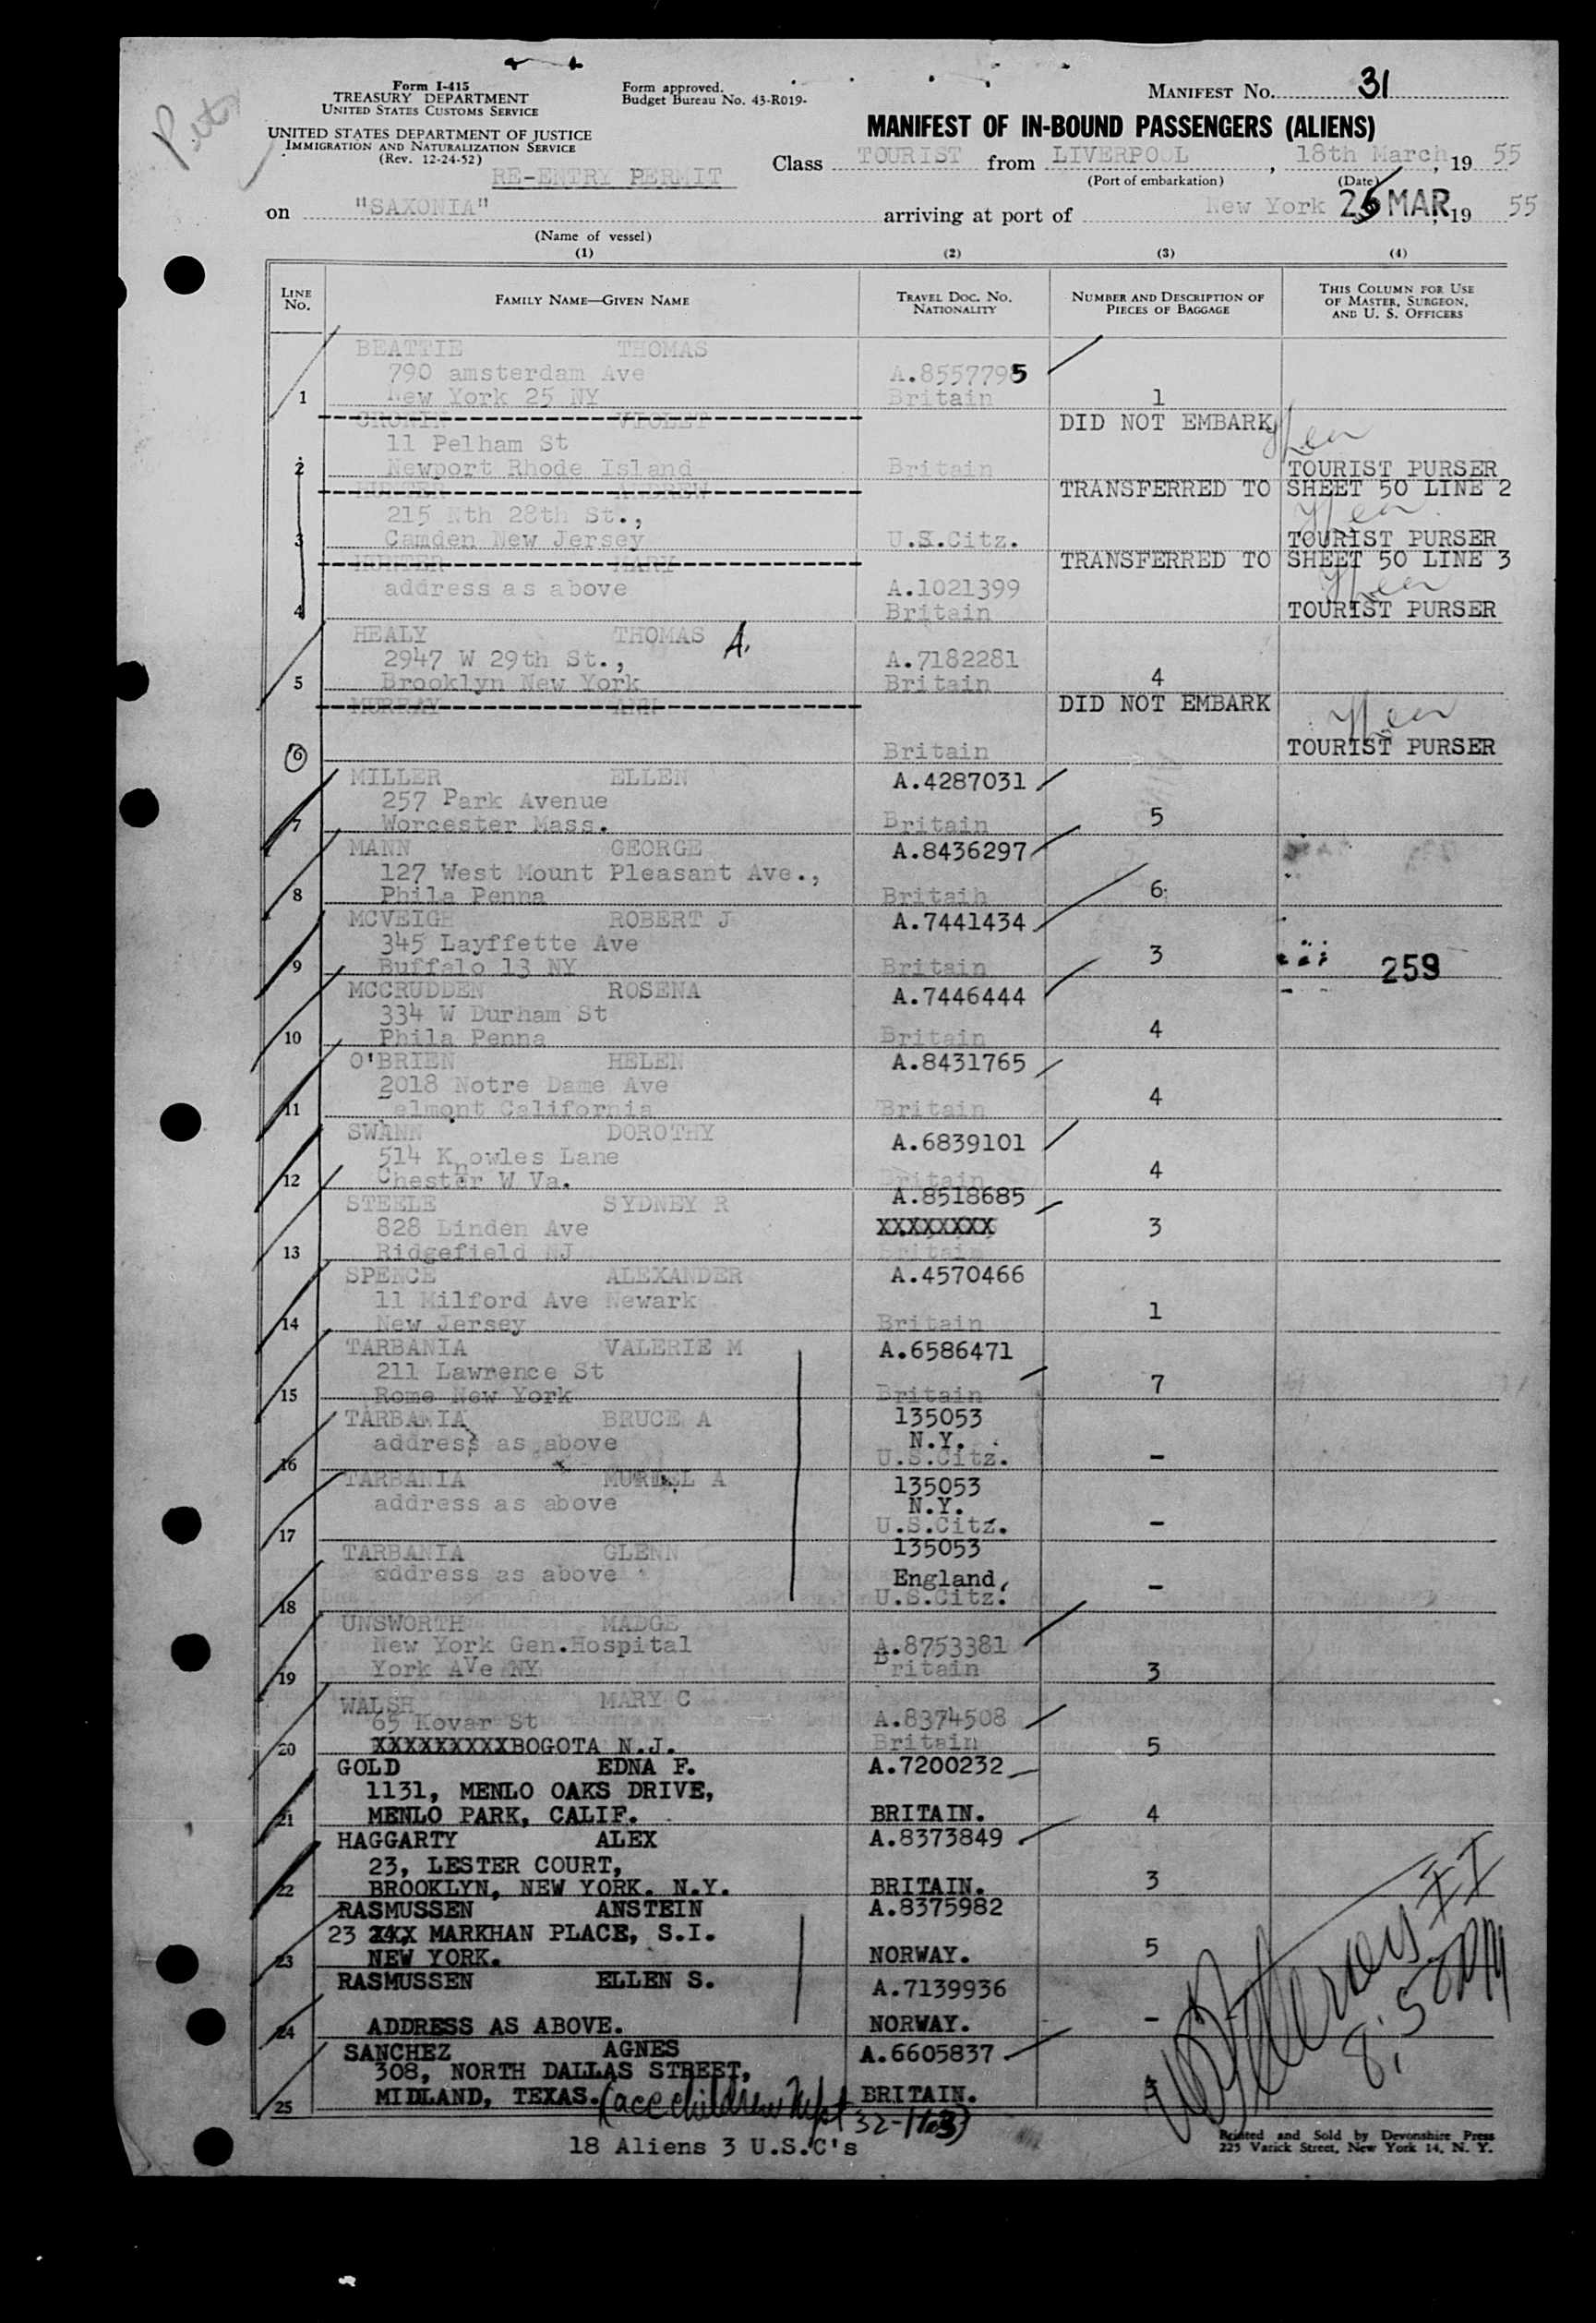 Form I-415
TREASURY DEPARTMENT
UNITED STATES CUSTOMS SERVICE
UNITED STATES DEPARTMENT OF JUSTICE
IMMIGRATION AND NATURALIZATION SERVICE
(Rev. 12-24-52)
RE-ENTRY PERMIT
Form approved.
Budget Bureau No. 43-R019-
MANIFEST NO. 31
MANIFEST OF IN-BOUND PASSENGERS (ALIENS)
Class TOURIST from LIVERPOOL, 18th March, 19 55
(Port of embarkation) (Date)
on "SAXONIA" arriving at port of New York 25 MAR, 19 55
(Name of vessel)
(1) (2) (3) (4)
LINE NO. FAMILY NAME—GIVEN NAME TRAVEL DOC. NO. NATIONALITY NUMBER AND DESCRIPTION OF PIECES OF BAGGAGE THIS COLUMN FOR USE OF MASTER, SURGEON, AND U. S. OFFICERS
BEATTIE THOMAS
790 amsterdam Ave A.8557795
1 New York 25 NY Britain 1
CRONIN VIOLET DID NOT EMBARK
11 Pelham St
2 Newport Rhode Island Britain TOURIST PURSER
HUNTER ANDREW TRANSFERRED TO SHEET 50 LINE 2
215 Nth 28th St.,
3 Camden New Jersey U.S.Citz. TOURIST PURSER
HUNTER MARY TRANSFERRED TO SHEET 50 LINE 3
address as above A.1021399
4 Britain TOURIST PURSER
HEALY THOMAS A.
2947 W 29th St., A.7182281
5 Brooklyn New York Britain 4
MURRAY ANN DID NOT EMBARK
6 Britain TOURIST PURSER
MILLER ELLEN A.4287031
257 Park Avenue
7 Worcester Mass. Britain 5
MANN GEORGE A.8436297
127 West Mount Pleasant Ave.,
8 Phila Penna Britain 6
MCVEIGH ROBERT J A.7441434
345 Layffette Ave
9 Buffalo 13 NY Britain 3 259
MCCRUDDEN ROSENA A.7446444
334 W Durham St
10 Phila Penna Britain 4
O'BRIEN HELEN A.8431765
2018 Notre Dame Ave
11 elmont California Britain 4
SWANN DOROTHY A.6839101
514 Knowles Lane
12 Chester W Va. Britain 4
STEELE SYDNEY R A.8518685
828 Linden Ave XXXXXXXX 3
13 Ridgefield NJ Britain
SPENCE ALEXANDER A.4570466
11 Milford Ave Newark
14 New Jersey Britain 1
TARBANIA VALERIE M A.6586471
211 Lawrence St
15 Rome New York Britain 7
TARBANIA BRUCE A 135053
address as above N.Y.
16 U.S.Citz. -
TARBANIA MURIEL A 135053
address as above N.Y.
17 U.S.Citz. -
TARBANIA GLENN 135053
address as above England,
18 U.S.Citz. -
UNSWORTH MADGE
New York Gen.Hospital A.8753381
19 York AVe NY Britain 3
WALSH MARY C
65 Kovar St A.8374508
20 XXXXXXXXXBOGOTA N.J. Britain 5
GOLD EDNA F. A.7200232
1131, MENLO OAKS DRIVE,
21 MENLO PARK, CALIF. BRITAIN. 4
HAGGARTY ALEX A.8373849
23, LESTER COURT,
22 BROOKLYN, NEW YORK. N.Y. BRITAIN. 3
RASMUSSEN ANSTEIN A.8375982
23 MARKHAN PLACE, S.I.
23 NEW YORK. NORWAY. 5
RASMUSSEN ELLEN S. A.7139936
24 ADDRESS AS ABOVE. NORWAY. -
SANCHEZ AGNES A.6605837
308, NORTH DALLAS STREET,
25 MIDLAND, TEXAS. (acc children BRITAIN.
18 Aliens 3 U.S.C's
8:50 PM
Printed and Sold by Devonshire Press
225 Varick Street, New York 14, N. Y.